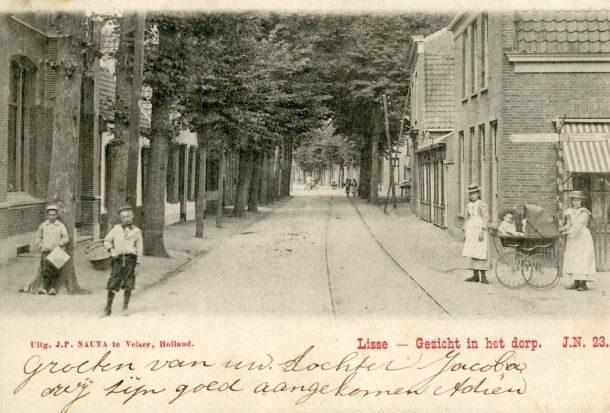 Uitg. J.P. NAUTA te Velser, Holland.
Lisse — Gezicht in het dorp. J.N. 23.
Groeten van uw dochter Jacoba
wij zijn goed aangekomen Adieu